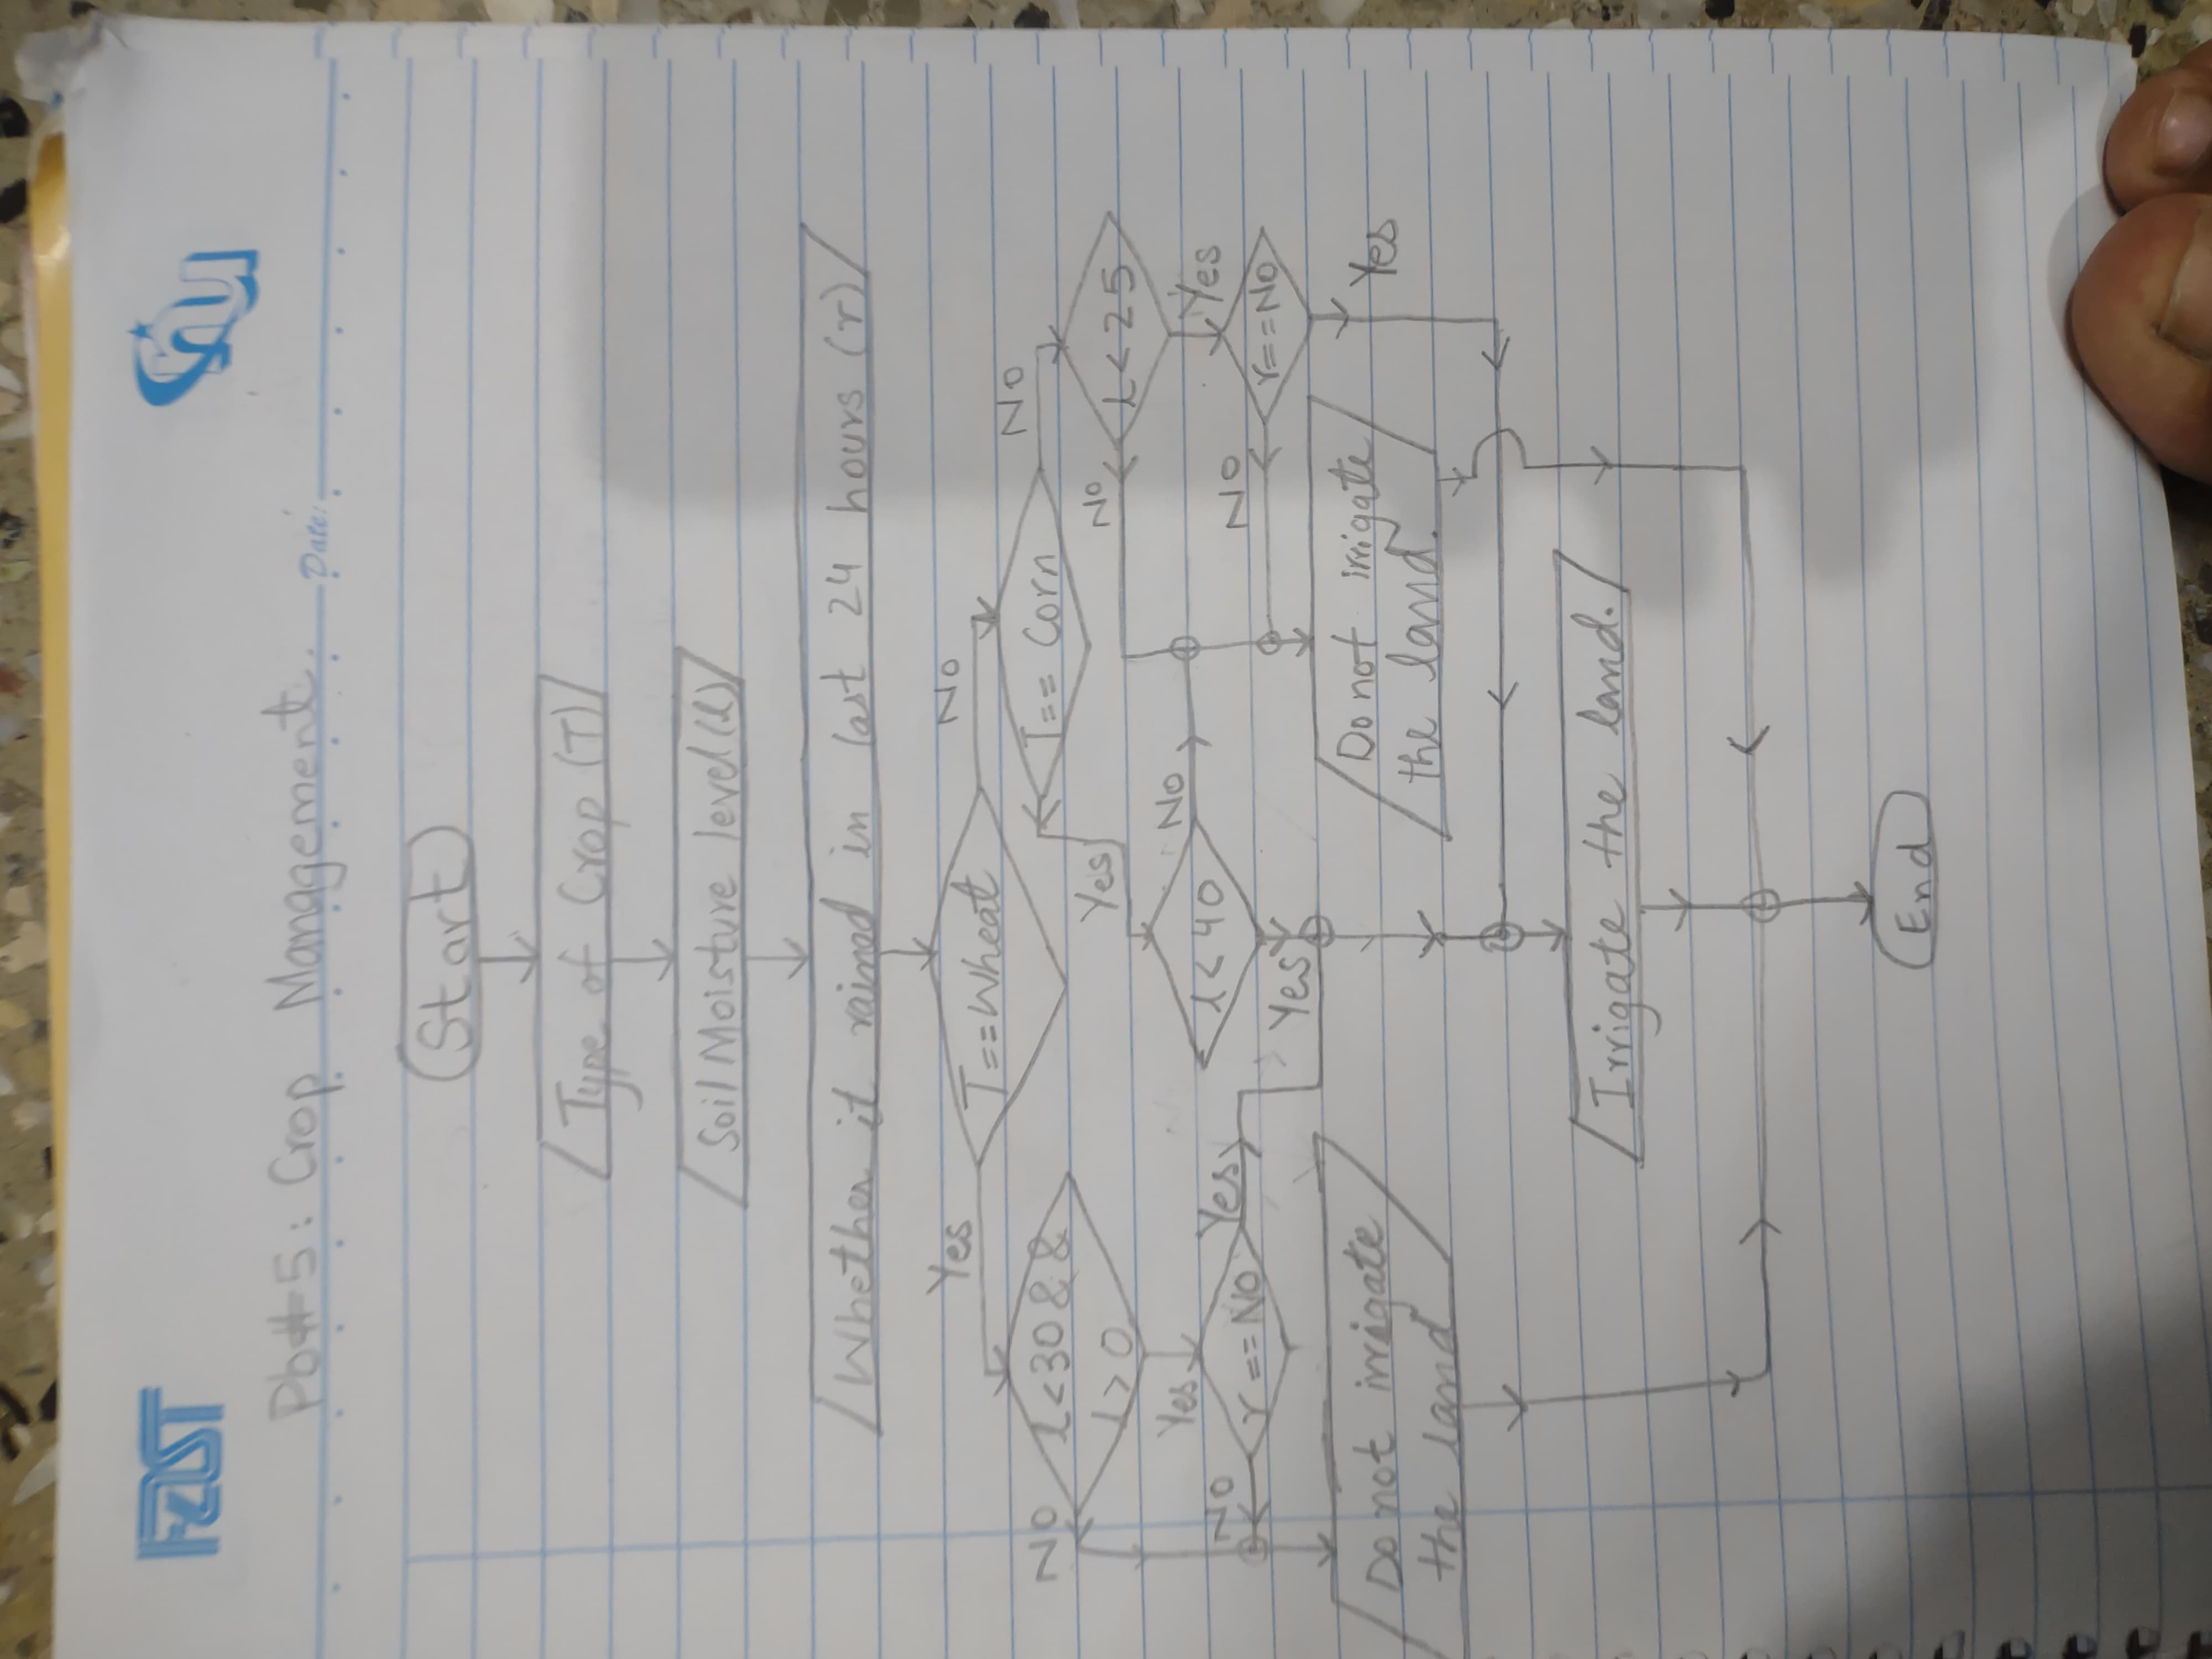 FAST
nu
Pb#5: Crop Management.
Date:
Start
Type of Crop (T)
Soil Moisture level (l)
Whether it rained in last 24 hours (r)
Yes
T==Wheat
No
No
l<30 &&
l>0
T== Corn
No
Yes
No
l<25
Yes
l<40
No
Yes
No
r==No
Yes
No
r==No
Yes
Do not irrigate
the land
Do not irrigate
the land.
Yes
Irrigate the land.
End